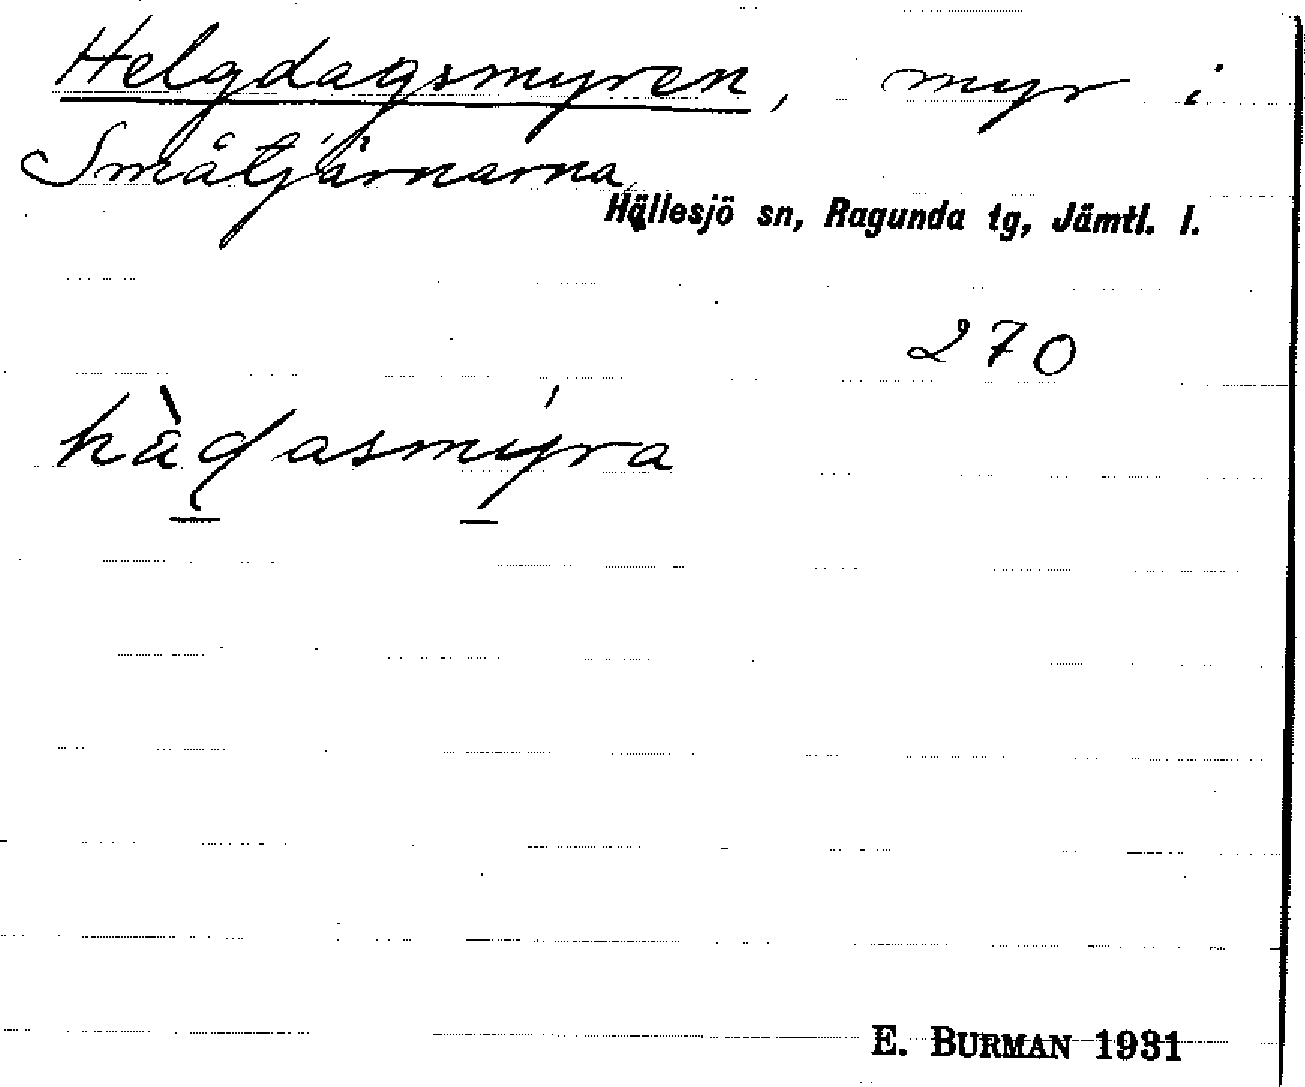 Helgdagsmyren, myr i
Småtjärnarna,
Hällesjö sn, Ragunda tg, Jämtl. l.
270
hàɠasmýra
E. BURMAN 1931